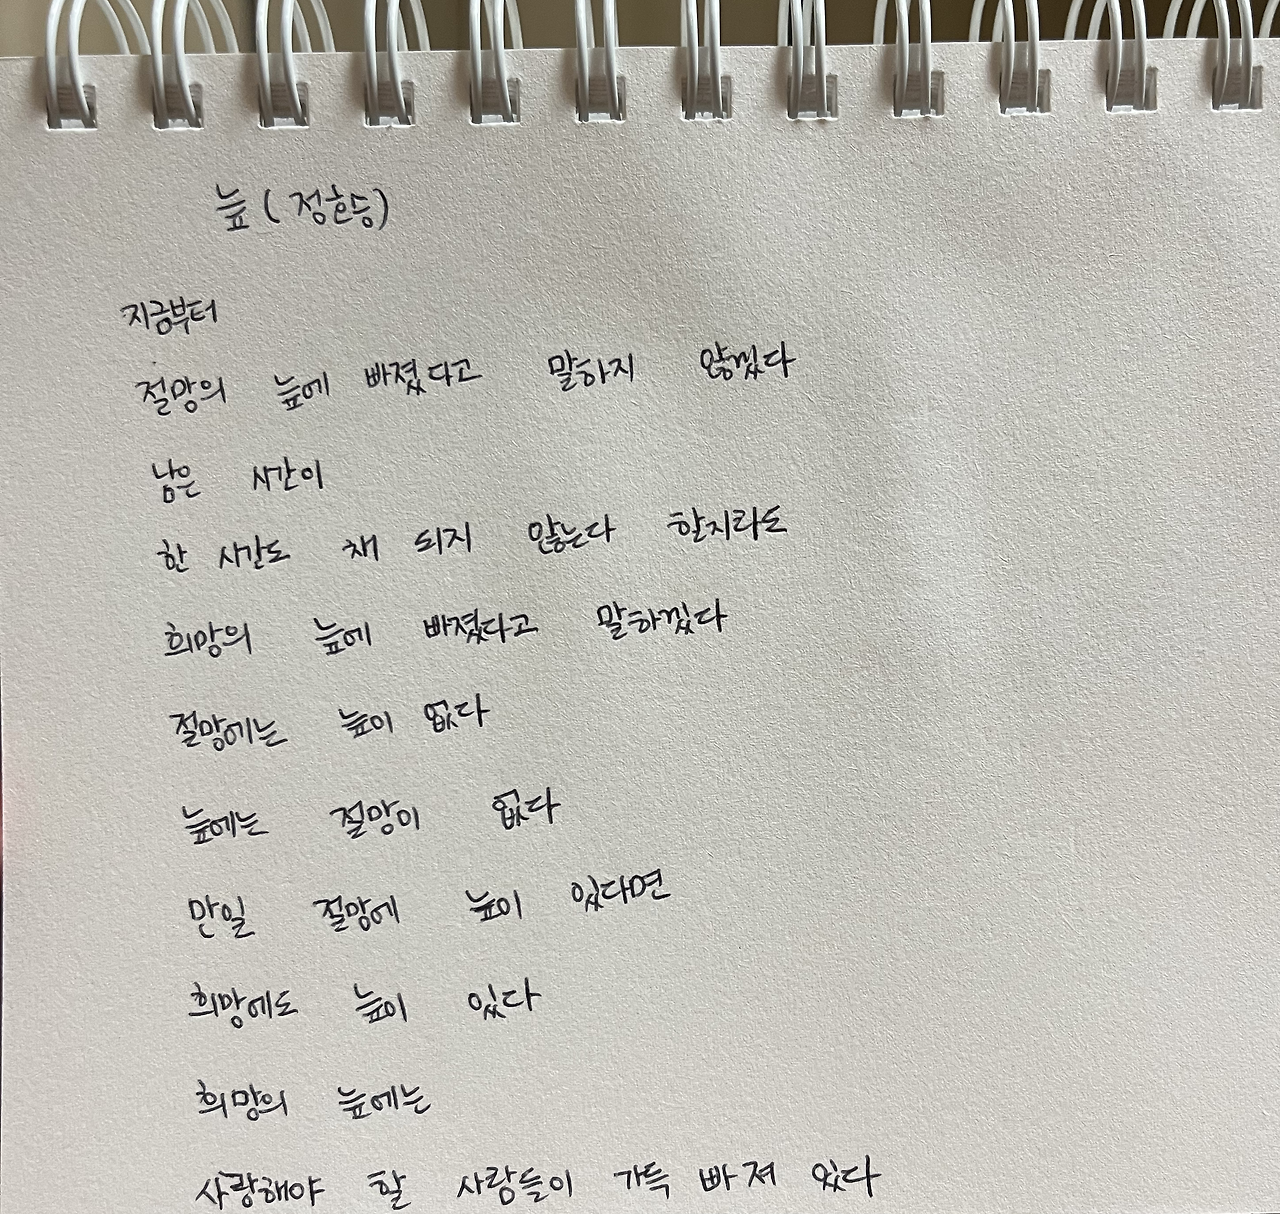 늪 (정호승)
지금부터
절망의 늪에 빠졌다고 말하지 않겠다
남은 시간이
한 시간도 채 되지 않는다 할지라도
희망의 늪에 빠졌다고 말하겠다
절망에는 늪이 없다
늪에는 절망이 없다
만일 절망에 늪이 있다면
희망에도 늪이 있다
희망의 늪에는
사랑해야 할 사람들이 가득 빠져 있다